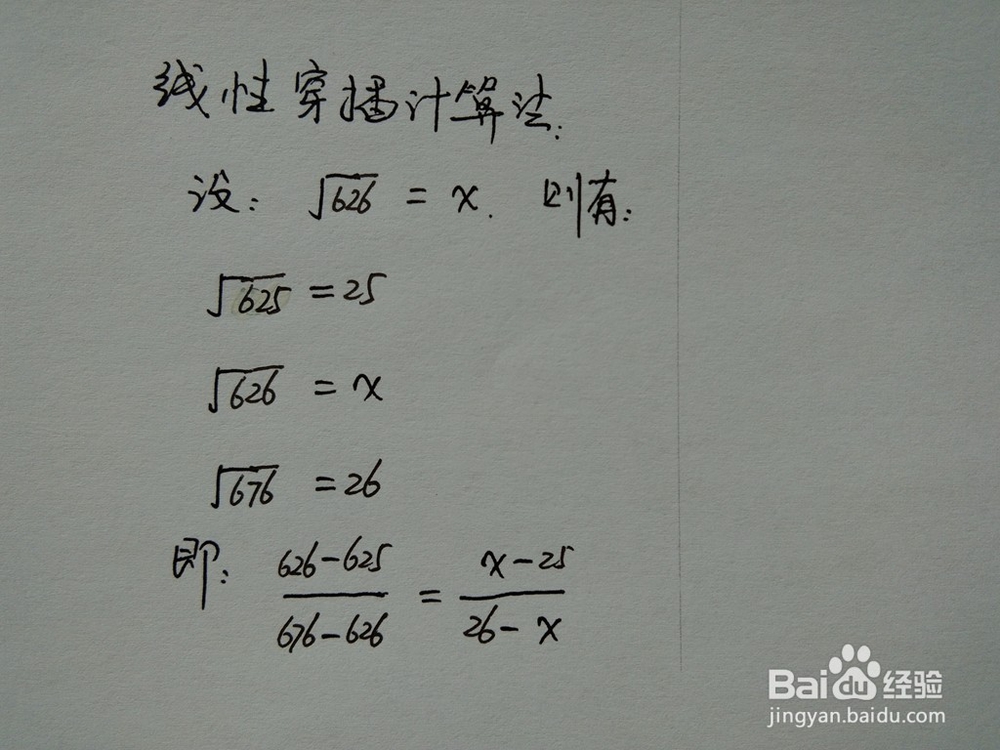 线性穿插计算法:
设: √626 = x. 则有:
√625 = 25
√626 = x
√676 = 26
即: (626-625)/(676-626) = (x-25)/(26-x)
Baidu 经验
jingyan.baidu.com